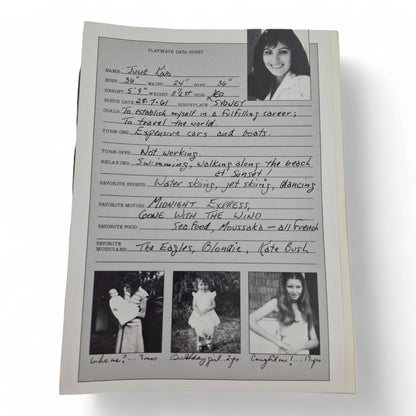 PLAYMATE DATA SHEET
NAME: Julie King
BUST: 36" WAIST: 24" HIPS: 36"
HEIGHT: 5'9" WEIGHT: 8½st SIGN: Leo
BIRTH DATE: 28.7.61 BIRTHPLACE: SYDNEY
GOALS: To establish myself in a fulfilling career;
To travel the world.
TURN-ONS: Expensive cars and boats.
TURN-OFFS: Not working.
RELAXING: Swimming, walking along the beach
at sunset!
FAVORITE SPORTS: Water skiing, jet skiing, dancing
FAVORITE MOVIES: MIDNIGHT EXPRESS,
GONE WITH THE WIND
FAVORITE FOOD: Sea Food, Moussaka - all French
FAVORITE
MUSICIANS: The Eagles, Blondie, Kate Bush
Who me?... 3 mos
Birthday girl..2yrs
Caught me!...11yrs